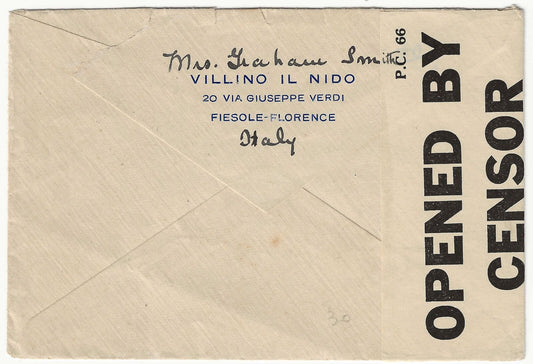 Mrs. Graham Smith
VILLINO IL NIDO
20 VIA GIUSEPPE VERDI
FIESOLE-FLORENCE
Italy
P.C. 66
OPENED BY
CENSOR
30